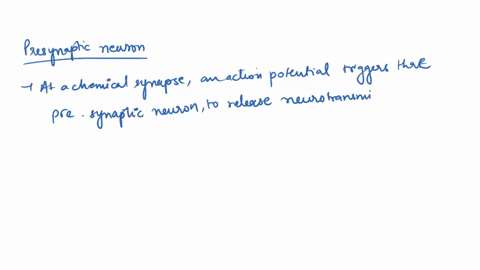 Presynaptic neuron
→ At a chemical synapse, an action potential triggers the
pre. synaptic neuron, to release neurotransmi